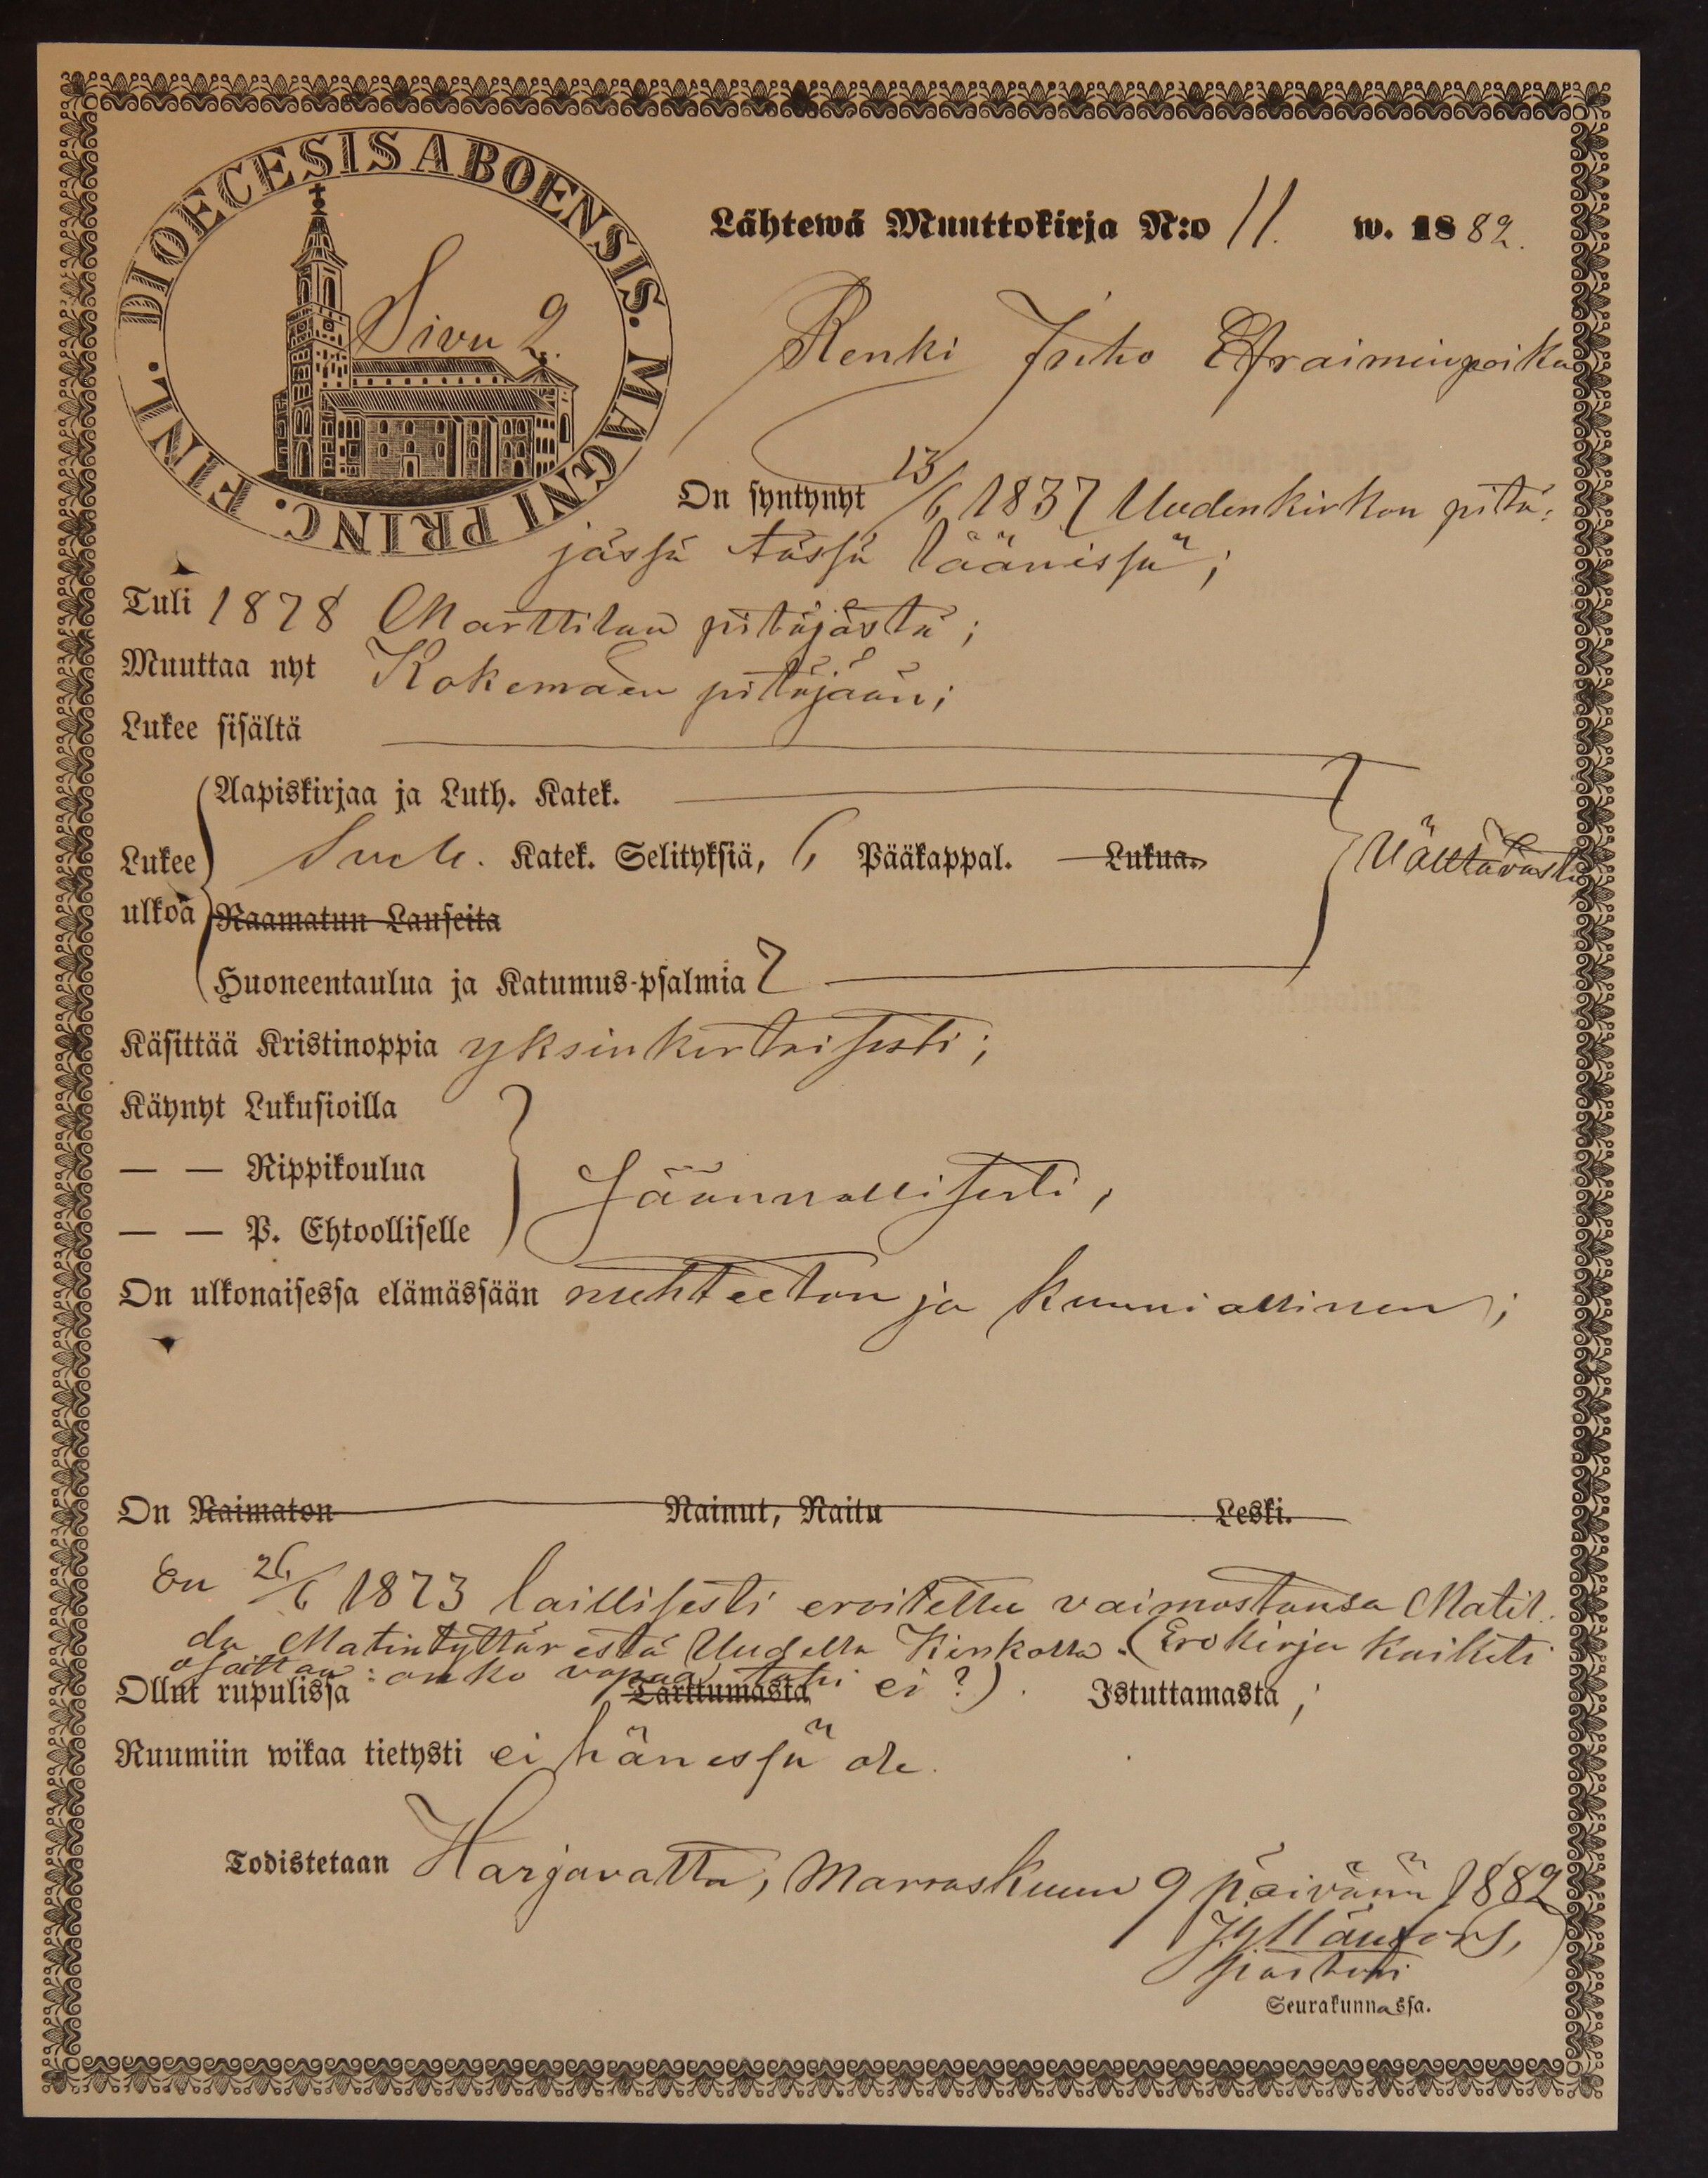 DIOECESIS ABOENSIS. MAGNI PRINC. FINL.
Sivu 2.
Lähtewä Muuttokirja N:o 11. w. 1882.
Renki Juho Efraiminpoika
On syntynyt 13/6 1837 Uudenkirkon pitä-
jässä tässä läänissä;
Tuli 1878 Marttilan pitäjästä;
Muuttaa nyt Kokemäen pitäjään;
Lukee sisältä
Aapiskirjaa ja Luth. Katek.
Lukee ulkoa
Katek. Selityksiä, 6 Pääkappal. Lukua. Välttävästi
Raamatun Lauseita
Huoneentaulua ja Katumus-psalmia 7
Käsittää Kristinoppia yksinkertaisesti;
Käynyt Lukusioilla
— — Rippikoulua
Säännöllisesti,
— — P. Ehtoolliselle
On ulkonaisessa elämässään nuhteeton ja kunniallinen;
On Raimaton Nainut, Naitu Leski.
On 26/6 1873 laillisesti eroitettu vaimostansa Matil-
da Matintyttärestä Uudella Kirkolla. (Erokirja kaiketi
osoittaa: onko vapaa, tahi ei?).
Ollut rupulissa Tarttumasta Istuttamasta;
Ruumiin wikaa tietysti ei hänessä ole.
Todistetaan Harjavalta, Marraskuun 9 päivänä 1882
pastori
Seurakunnassa.